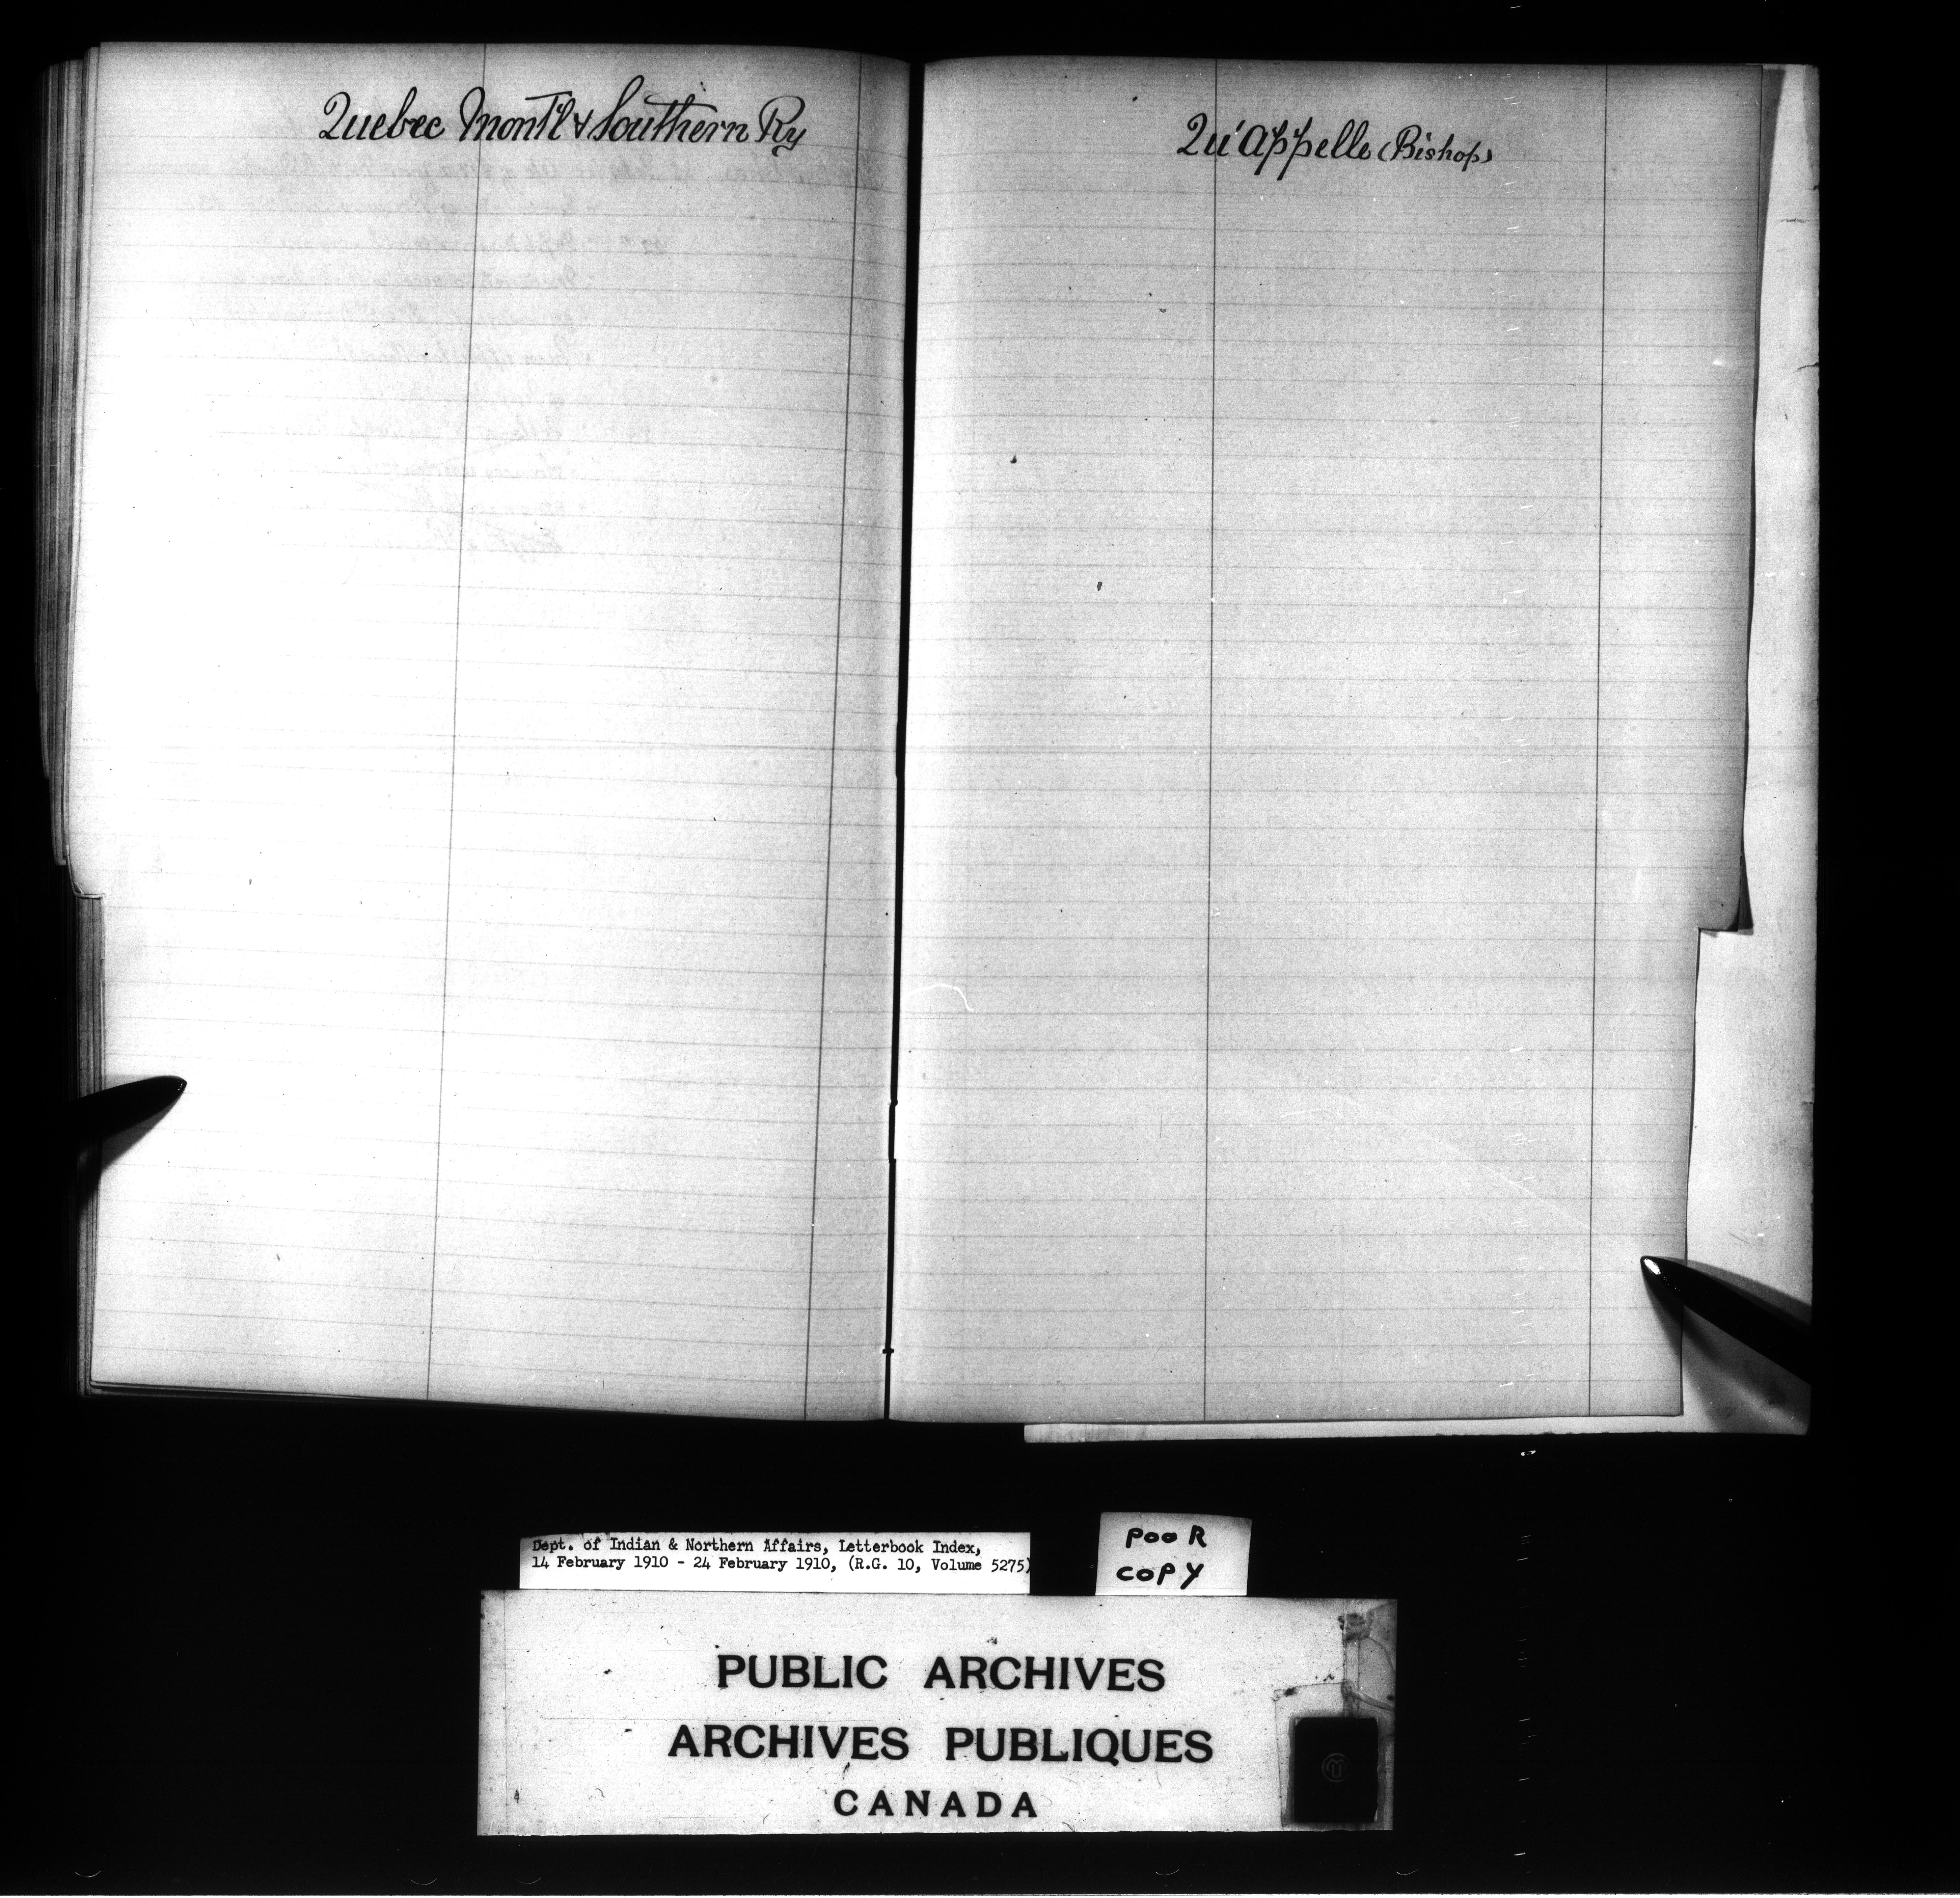 Quebec Montl & Southern Ry
Qu'Appelle (Bishop)
Dept. of Indian & Northern Affairs, Letterbook Index,
14 February 1910 - 24 February 1910, (R.G. 10, Volume 5275)
POOR
COPY
PUBLIC ARCHIVES
ARCHIVES PUBLIQUES
CANADA